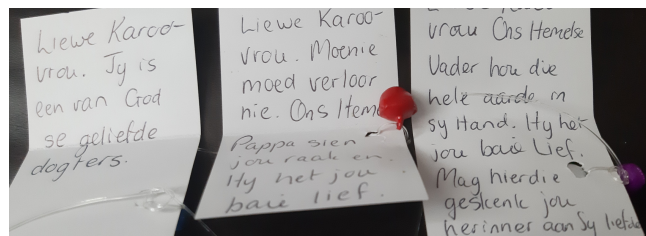 Liewe Karoo-
vrou. Jy is
een van God
se geliefde
dogters.
Liewe Karoo-
vrou. Moenie
moed verloor
nie. Ons Heme
Pappa sien
jou raak en
Hy het jou
baie lief.
vrou Ons Hemelse
Vader hou die
hele aarde in
sy Hand. Hy het
jou baie Lief.
Mag hierdie
geskenk jou
herinner aan Sy liefde